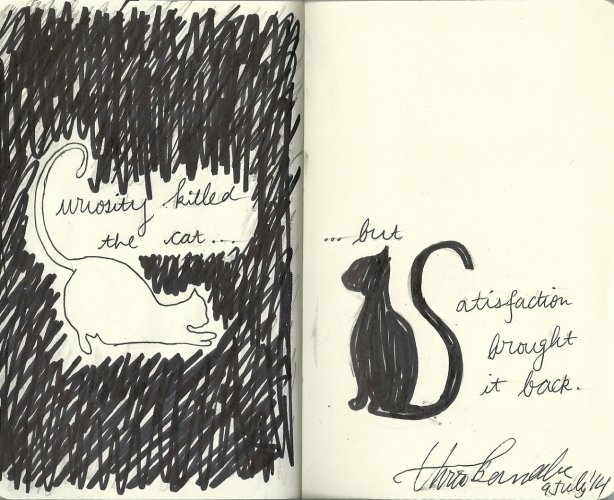 Curiosity killed
the cat...
... but
Satisfaction
brought
it back.
9 July '14